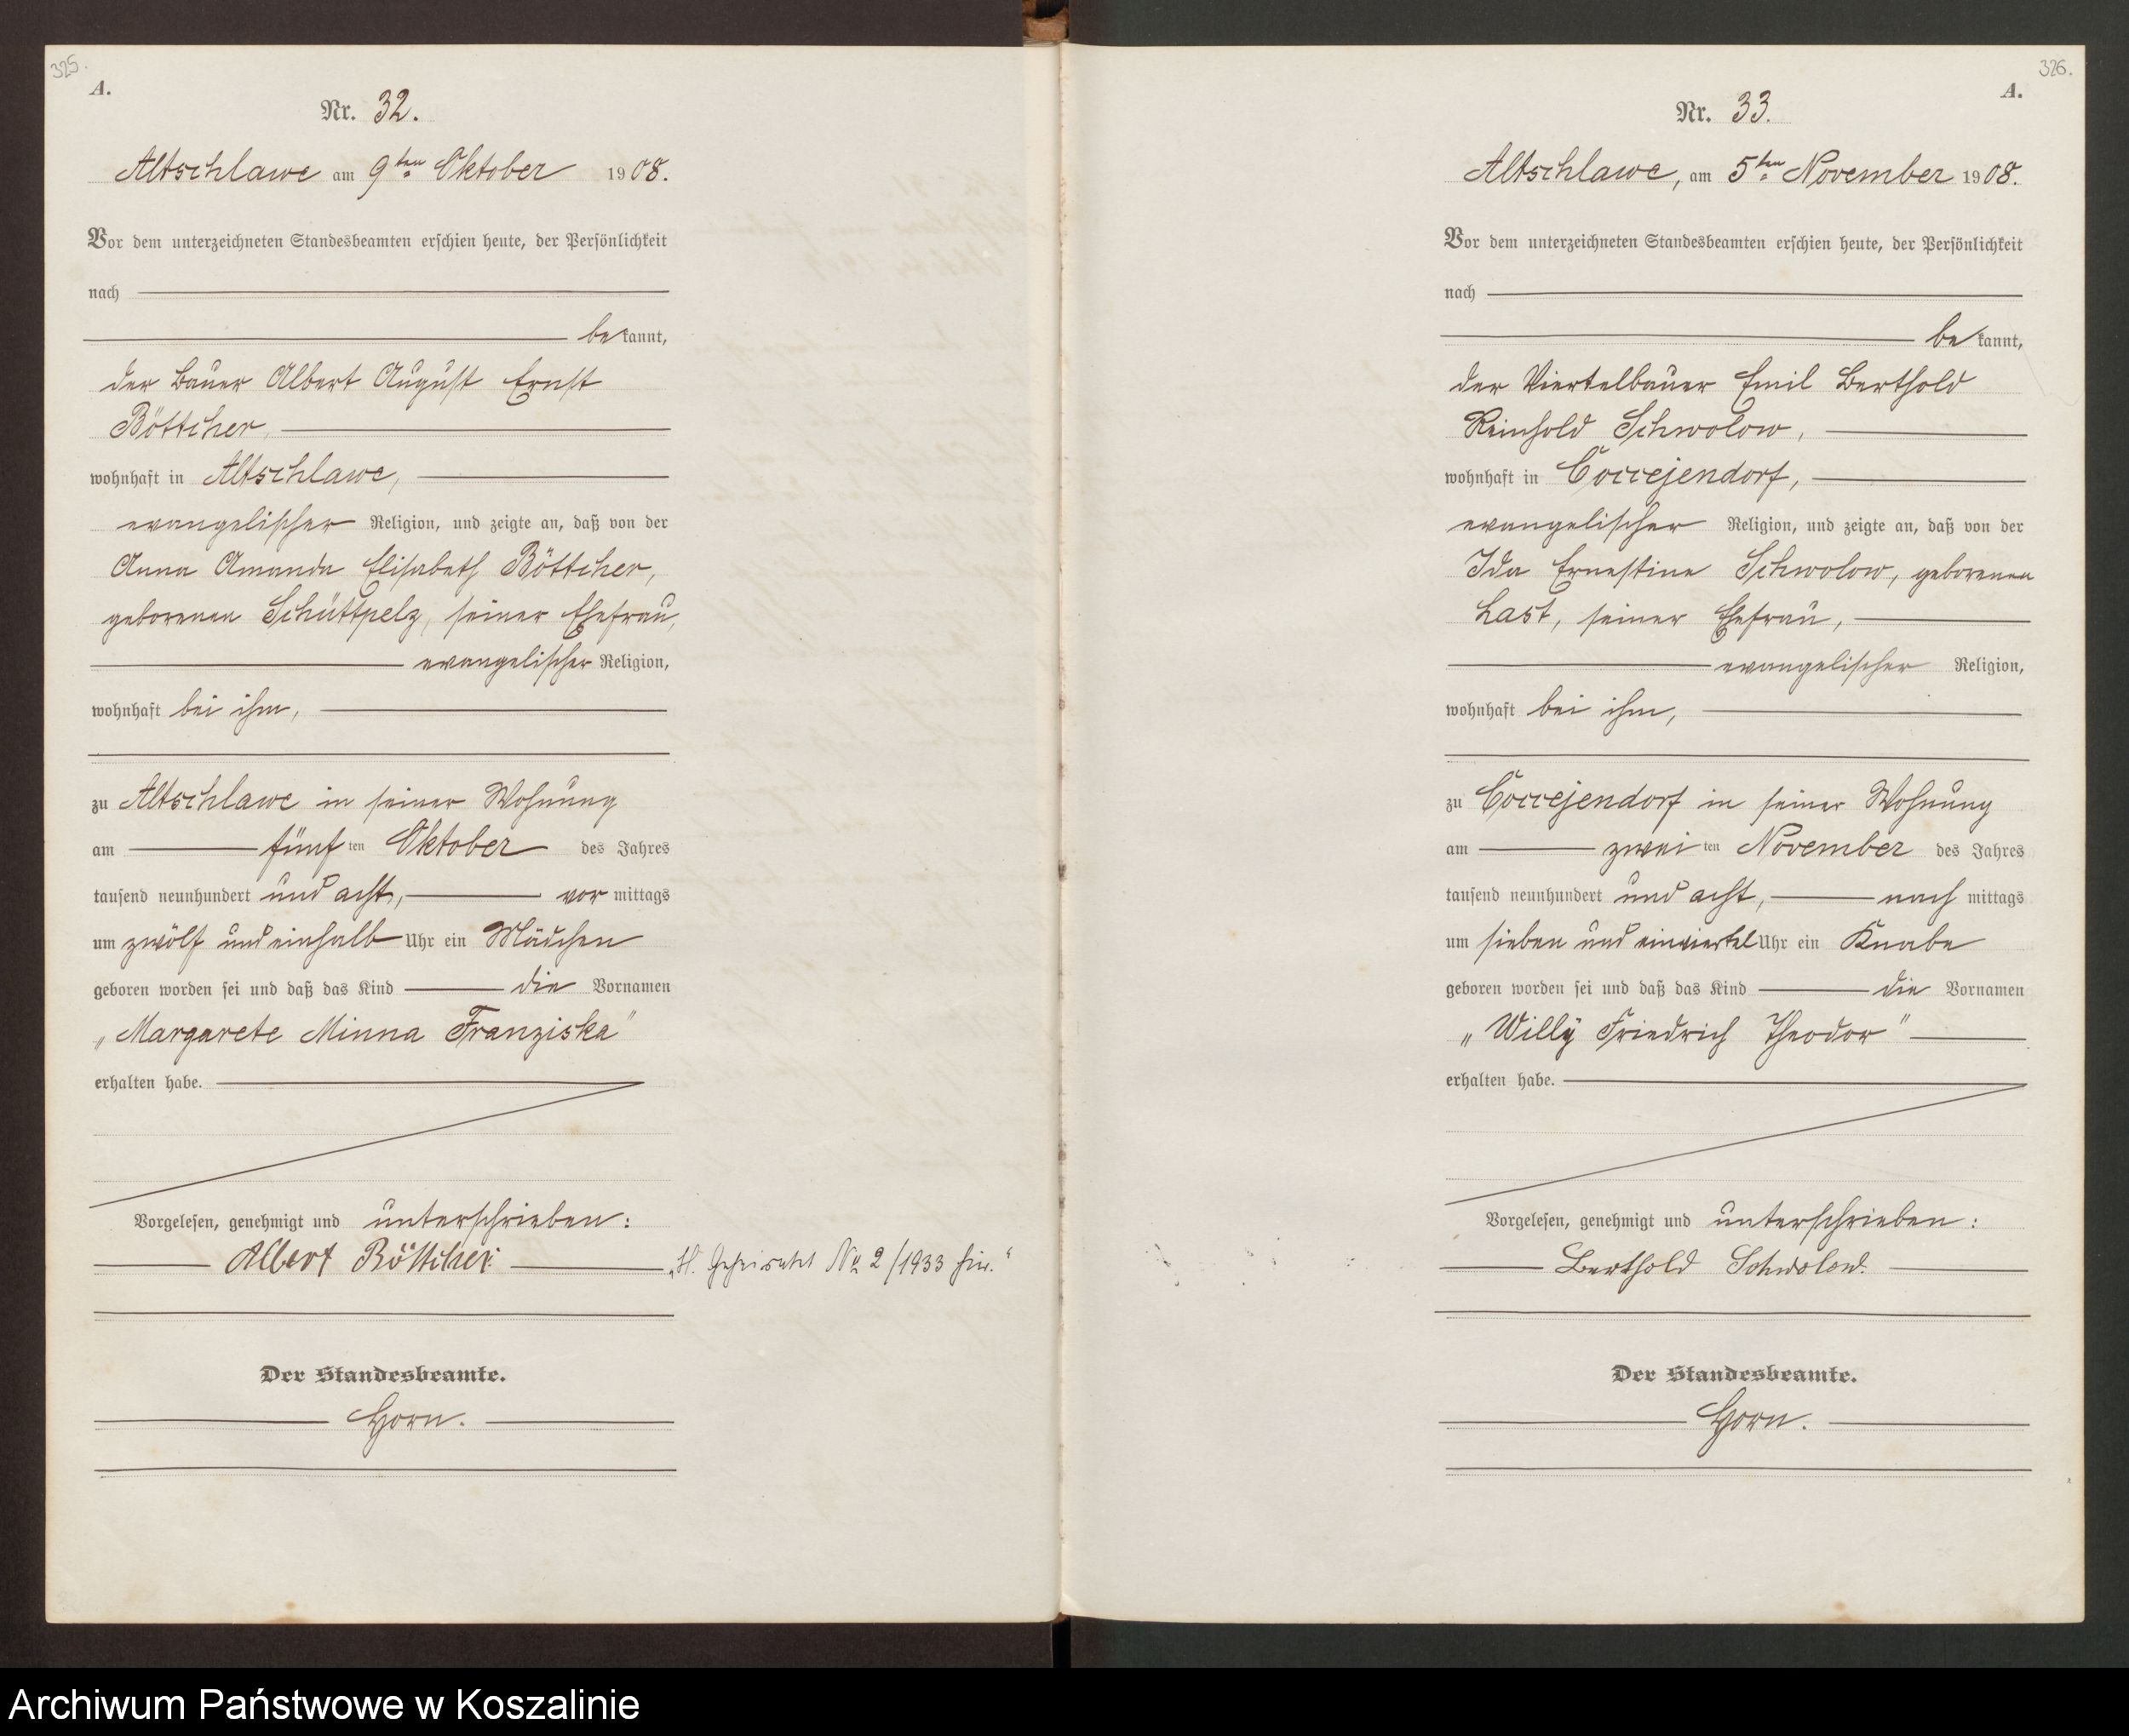 325.
A.
Nr. 32.
Altschlawe am 9ten Oktober 1908.
Vor dem unterzeichneten Standesbeamten erschien heute, der Persönlichkeit
nach
bekannt,
der Bauer Albert August Ernst
Böttcher,
wohnhaft in Altschlawe,
evangelischer Religion, und zeigte an, daß von der
Anna Amanda Elisabeth Böttcher,
geborenen Schüttpelz, seiner Ehefrau,
evangelischer Religion,
wohnhaft bei ihm,
zu Altschlawe in seiner Wohnung
am fünften Oktober des Jahres
tausend neunhundert und acht, vormittags
um zwölf und einhalb Uhr ein Mädchen
geboren worden sei und daß das Kind die Vornamen
„Margarete Minna Franziska"
erhalten habe.
Vorgelesen, genehmigt und unterschrieben:
Albert Böttcher.
Geheiratet No 2/1933
Der Standesbeamte.
Horn.
326.
A.
Nr. 33.
Altschlawe, am 5ten November 1908.
Vor dem unterzeichneten Standesbeamten erschien heute, der Persönlichkeit
nach
bekannt,
der Viertelbauer Emil Berthold
Reinhold Schwolow,
wohnhaft in Coccejendorf,
evangelischer Religion, und zeigte an, daß von der
Ida Ernestine Schwolow, geborenen
Last, seiner Ehefrau,
evangelischer Religion,
wohnhaft bei ihm,
zu Coccejendorf in seiner Wohnung
am zweiten November des Jahres
tausend neunhundert und acht, nachmittags
um sieben und einviertel Uhr ein Knabe
geboren worden sei und daß das Kind die Vornamen
„Willÿ Friedrich Theodor"
erhalten habe.
Vorgelesen, genehmigt und unterschrieben:
Berthold Schwolow.
Der Standesbeamte.
Horn.
Archiwum Państwowe w Koszalinie